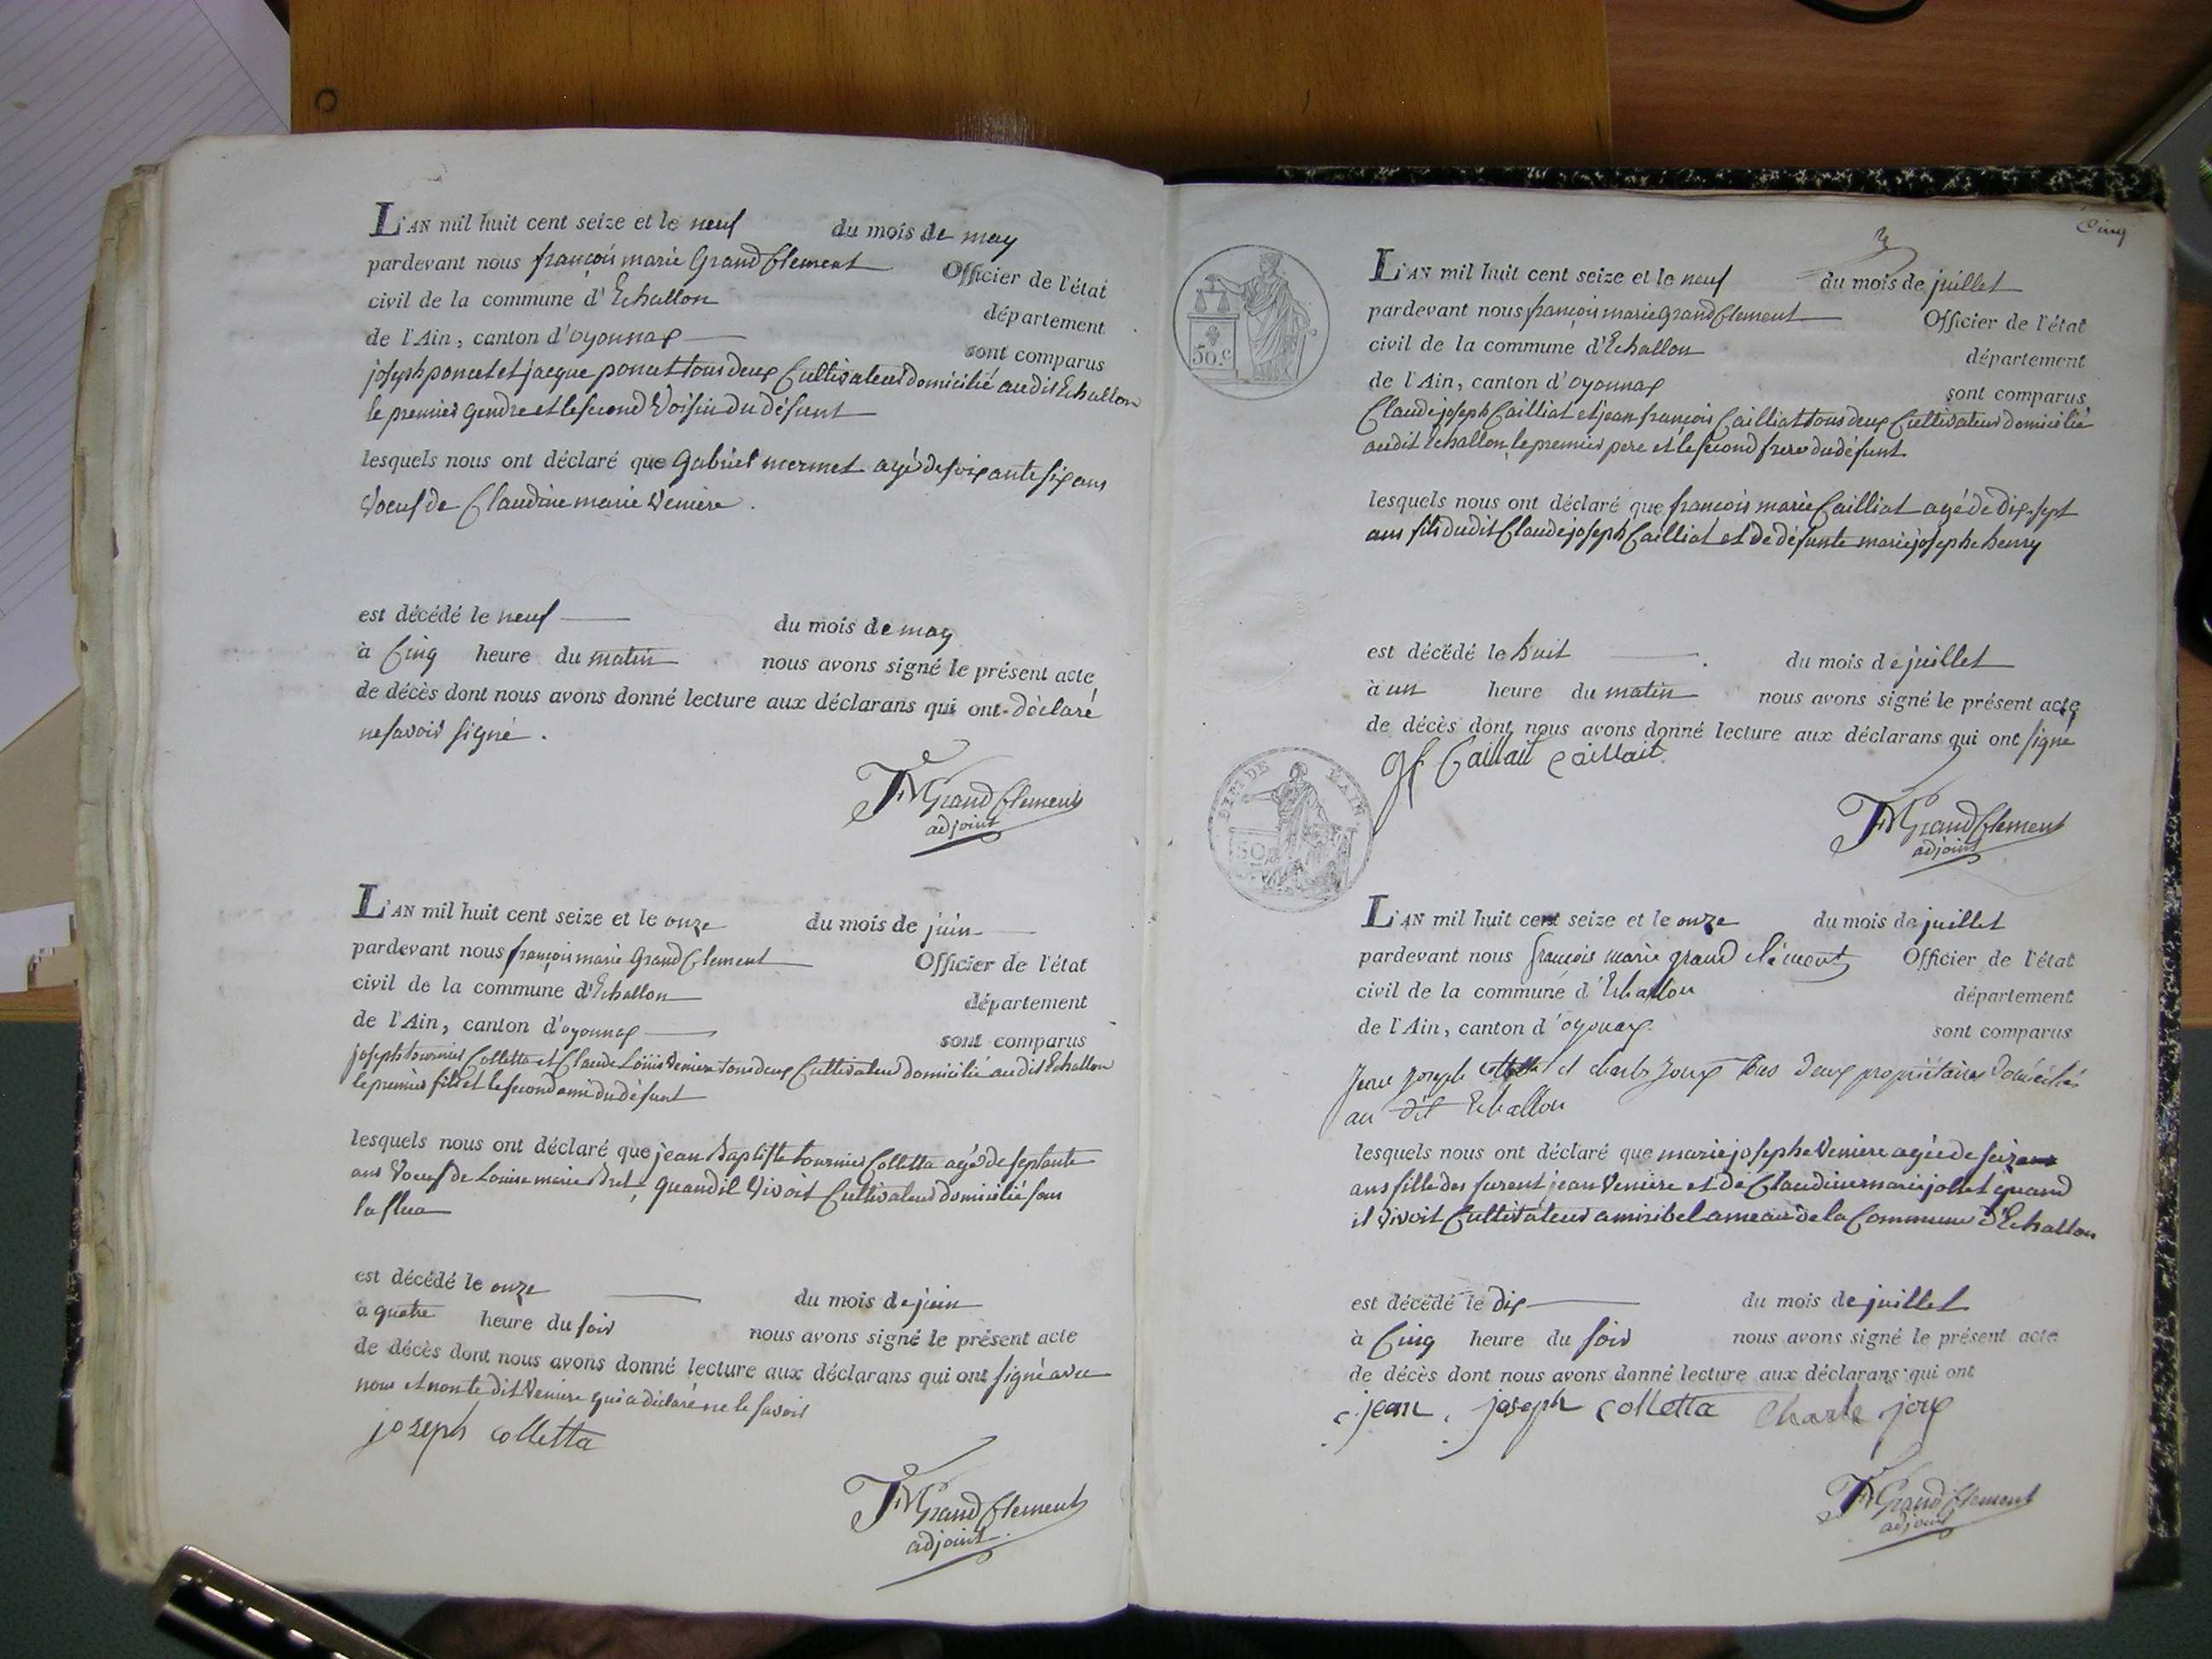 L'AN mil huit cent seize et le neuf du mois de may
pardevant nous françois marie Grand Clement Officier de l'état
civil de la commune d'Echallon département
de l'Ain, canton d'oyonnax sont comparus
joseph poncet et jacque poncet tous deux Cultivateur domicilié audit Echallon
le premier gendre et le second Voisin du défunt
lesquels nous ont déclaré que Gabriel mermet agé de soixante six ans
Voeuf de Claudine marie Veniere.
est décédé le neuf du mois de may
à Cinq heure du matin nous avons signé le présent acte
de décès dont nous avons donné lecture aux déclarans qui ont déclaré
ne savoir signé.
FM Grand Clement
adjoint
L'AN mil huit cent seize et le onze du mois de juin
pardevant nous françois marie Grand Clement Officier de l'état
civil de la commune d'Echallon département
de l'Ain, canton d'oyonnax sont comparus
joseph tournier Colletta et Claude Loüis Veniere tous deux Cultivateur domicilié audit Echallon
le premier fils et le second ami du défunt
lesquels nous ont déclaré que jean Baptiste tournier Colletta agé de septante
ans Voeuf de Louise marie Bret, quand il Vivoit Cultivateur domicilié sous
la flua
est décédé le onze du mois de juin
à quatre heure du soir nous avons signé le présent acte
de décès dont nous avons donné lecture aux déclarans qui ont signé avec
nous et non le dit Veniere qui a déclaré ne le savoir
joseph colletta
FM Grand Clement
adjoint
Cinq
L'AN mil huit cent seize et le neuf du mois de juillet
pardevant nous françois marie Grand Clement Officier de l'état
civil de la commune d'Echallon département
de l'Ain, canton d'oyonnax sont comparus
Claude joseph Cailliat et jean françois Cailliat tous deux Cultivateur domicilié
audit Echallon, le premier pere et le second frere du défunt
lesquels nous ont déclaré que françois marie Cailliat agé de dix sept
ans fils dudit Claude joseph Cailliat et de défunte marie josephe henry
est décédé le huit du mois de juillet
à un heure du matin nous avons signé le présent acte
de décès dont nous avons donné lecture aux déclarans qui ont signé
jf Caillait Caillait
FM Grand Clement
adjoint
50.c
DEPT DE L'AIN
50
L'AN mil huit cent seize et le onze du mois de juillet
pardevant nous françois marie grand clément Officier de l'état
civil de la commune d'Echallon département
de l'Ain, canton d'oyonax sont comparus
Jean joseph colletta et charles joux tous deux propriétaires domiciliés
au dit Echallon
lesquels nous ont déclaré que marie josephe Veniere agée de seize
ans fille des furent jean Veniere et de Claudine marie jollet quand
il Vivoit Cultivateur a miribel ameau de la Commune d'Echallon
est décédé le dix du mois de juillet
à Cinq heure du soir nous avons signé le présent acte
de décès dont nous avons donné lecture aux déclarans qui ont
jean joseph colletta Charle joux
FM Grand Clement
adjoint